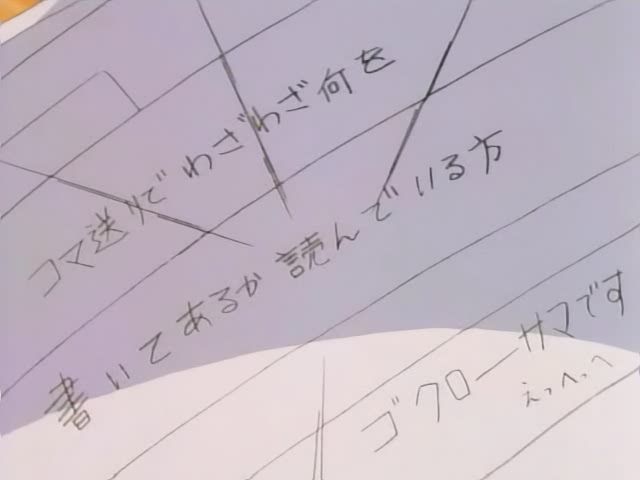 コマ送りでわざわざ何を
書いてあるか読んでいる方
ゴクローサマです
えっへっへ